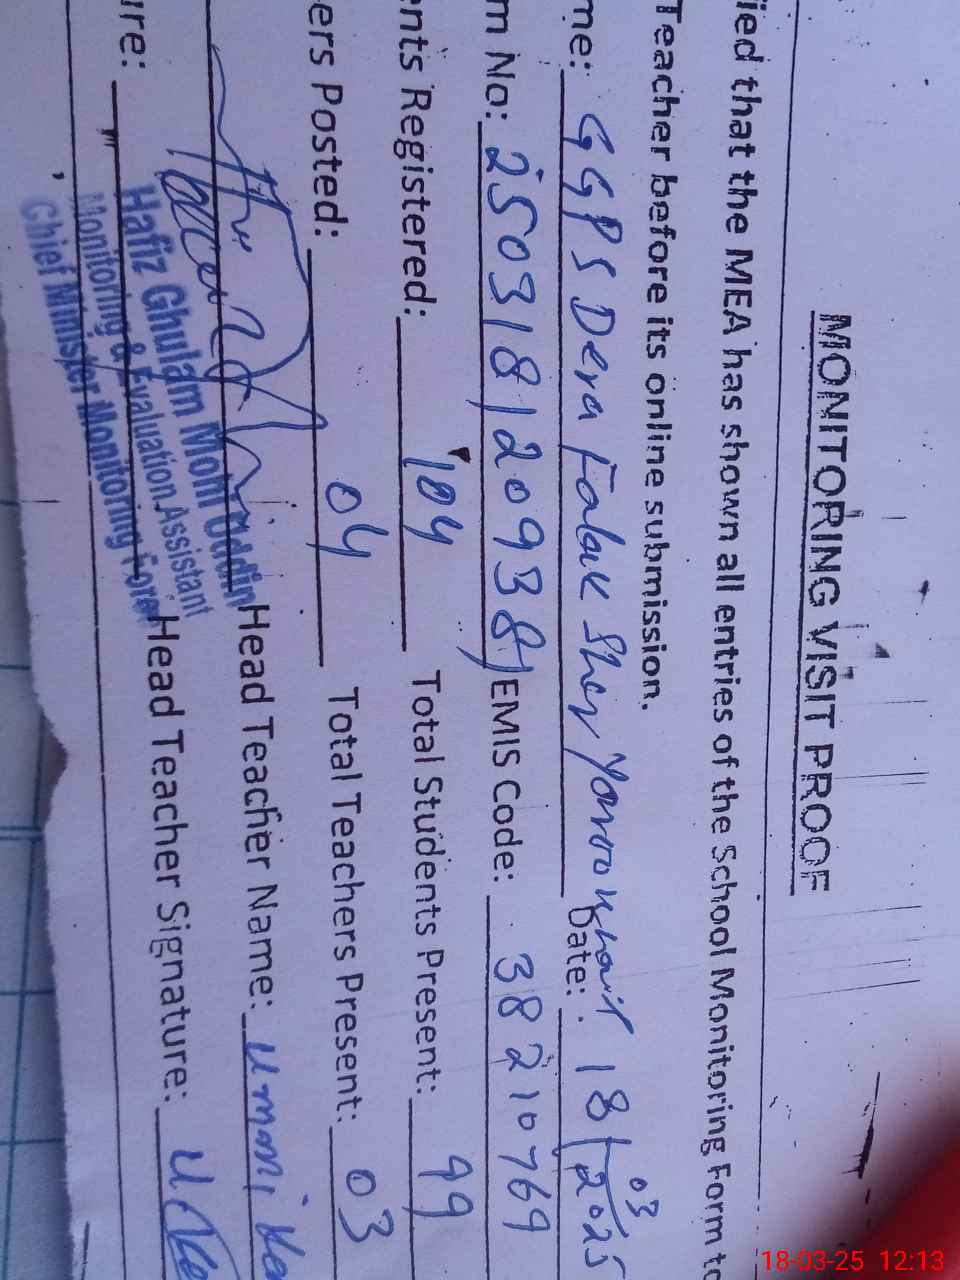 MONITORING VISIT PROOF
ied that the MEA has shown all entries of the School Monitoring Form to
Teacher before its online submission.
me: GGPS Dera Falak Sher Date: 18/03/2025
m No: 250318120938) EMIS Code: 38210769
ents Registered: 104 Total Students Present: 99
ers Posted: 04 Total Teachers Present: 03
Head Teacher Name: Ummi
ure: Head Teacher Signature:
Hafiz Ghulam Mohi Uddin
Monitoring & Evaluation Assistant
Chief Minister Monitoring Force
18-03-25 12:13